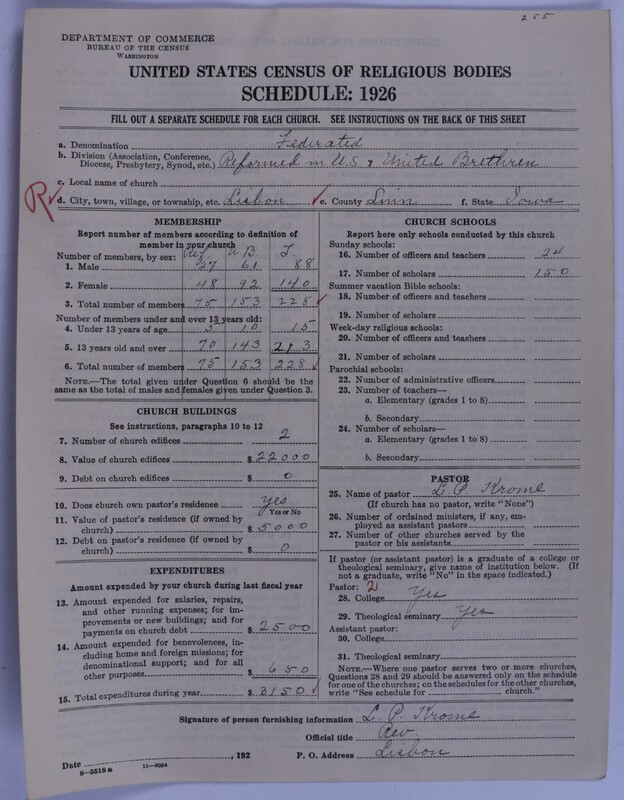 255
DEPARTMENT OF COMMERCE
BUREAU OF THE CENSUS
WASHINGTON
UNITED STATES CENSUS OF RELIGIOUS BODIES
SCHEDULE: 1926
FILL OUT A SEPARATE SCHEDULE FOR EACH CHURCH. SEE INSTRUCTIONS ON THE BACK OF THIS SHEET
a. Denomination Federated
b. Division (Association, Conference, Diocese, Presbytery, Synod, etc.) Reformed in U.S. & United Brethren
c. Local name of church
R
d. City, town, village, or township, etc. Lisbon e. County Linn f. State Iowa
MEMBERSHIP
Report number of members according to definition of
member in your church
Ref. U.B. T.
Number of members, by sex:
1. Male 27 61 88
2. Female 48 92 140
3. Total number of members 75 153 228
Number of members under and over 13 years old:
4. Under 13 years of age 5 10 15
5. 13 years old and over 70 143 213
6. Total number of members 75 153 228
NOTE.—The total given under Question 6 should be
same as the total of males and females given under Question 3.
CHURCH BUILDINGS
See instructions, paragraphs 10 to 12
7. Number of church edifices 2
8. Value of church edifices $ 22000
9. Debt on church edifices $ 0
10. Does church own pastor's residence? yes
Yes or No
11. Value of pastor's residence (if owned by
church) $ 5000
12. Debt on pastor's residence (if owned by
church) $ 0
EXPENDITURES
Amount expended by your church during last fiscal year
13. Amount expended for salaries, repairs,
and other running expenses; for im-
provements or new buildings; and for
payments on church debt $ 2500
14. Amount expended for benevolences, in-
cluding home and foreign missions; for
denominational support; and for all
other purposes $ 650
15. Total expenditures during year $ 3150
CHURCH SCHOOLS
Report here only schools conducted by this church
Sunday schools:
16. Number of officers and teachers 24
17. Number of scholars 150
Summer vacation Bible schools:
18. Number of officers and teachers
19. Number of scholars
Week-day religious schools:
20. Number of officers and teachers
21. Number of scholars
Parochial schools:
22. Number of administrative officers
23. Number of teachers—
a. Elementary (grades 1 to 8)
b. Secondary
24. Number of scholars—
a. Elementary (grades 1 to 8)
b. Secondary
PASTOR
25. Name of pastor L. P. Krome
(If church has no pastor, write "None")
26. Number of ordained ministers, if any, em-
ployed as assistant pastors
27. Number of other churches served by the
pastor or his assistants
If pastor (or assistant pastor) is a graduate of a college or
theological seminary, give name of institution below. (If
not a graduate, write "No" in the space indicated.)
Pastor: 2
28. College Yes
29. Theological seminary Yes
Assistant pastor:
30. College
31. Theological seminary
NOTE.—Where one pastor serves two or more churches,
Questions 28 and 29 should be answered only on the schedule
for one of the churches; on the schedules for the other churches,
write "See schedule for church."
Signature of person furnishing information L. P. Krome
Official title Rev.
Date , 192 P. O. Address Lisbon
8—5518a 11—9054